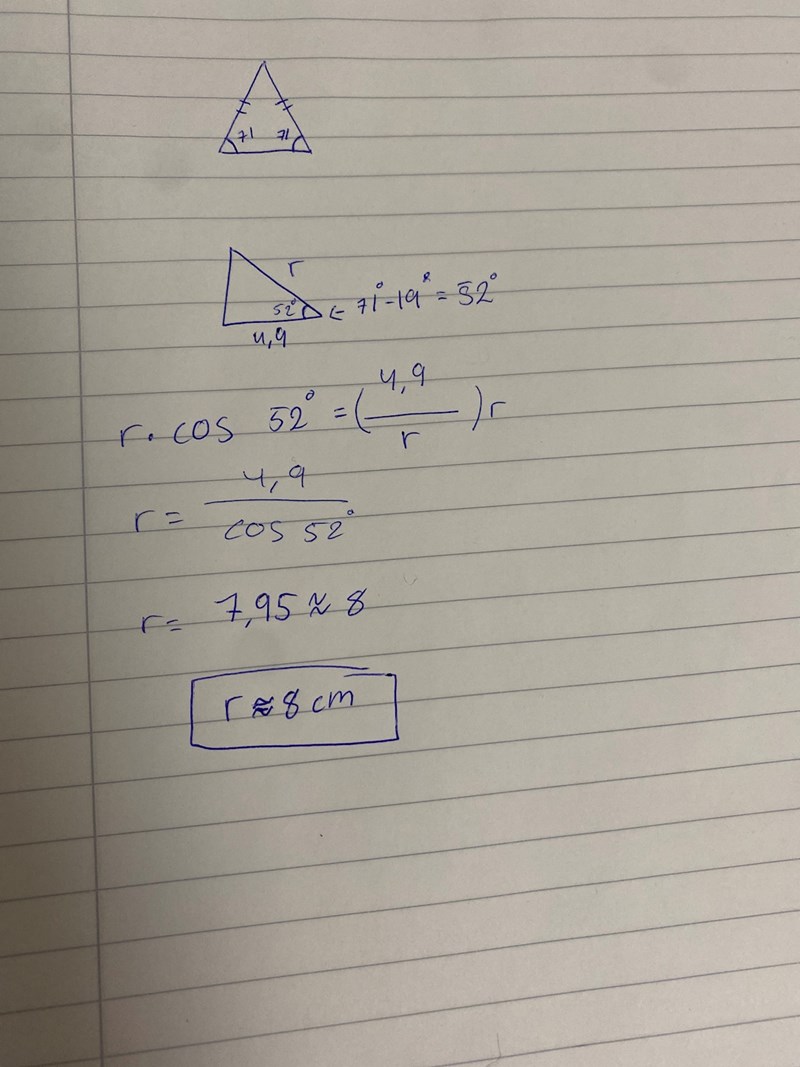 71 71
r
52° ← 71° - 19° = 52°
4,9
r • cos 52° = (4,9 / r) r
r = 4,9 / cos 52°
r = 7,95 ≈ 8
r ≈ 8 cm